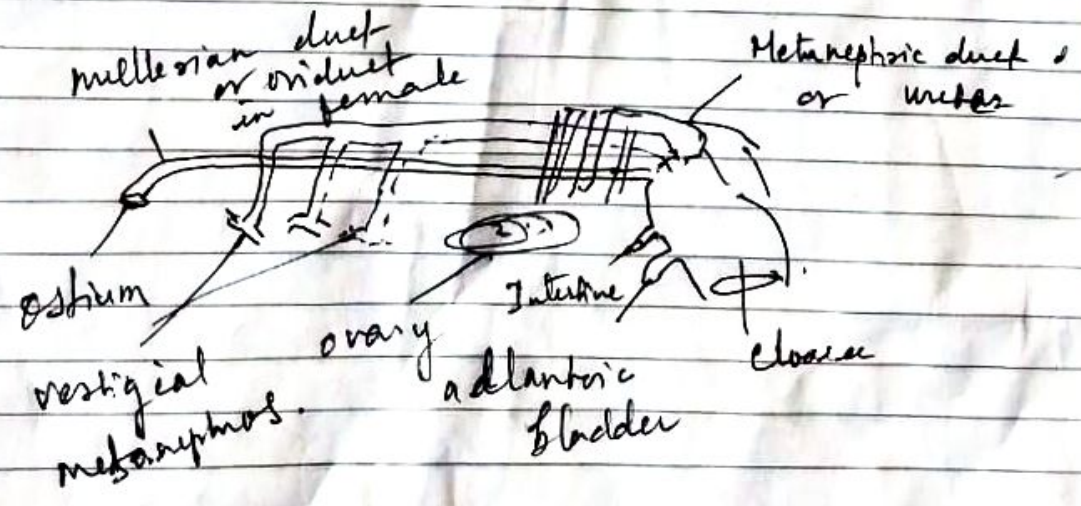 mullerian duct
or oviduct
in female
Metanephric duct
or ureter
Ostium
vestigial
mesonephros.
ovary
Intestine
allantoic
bladder
cloaca